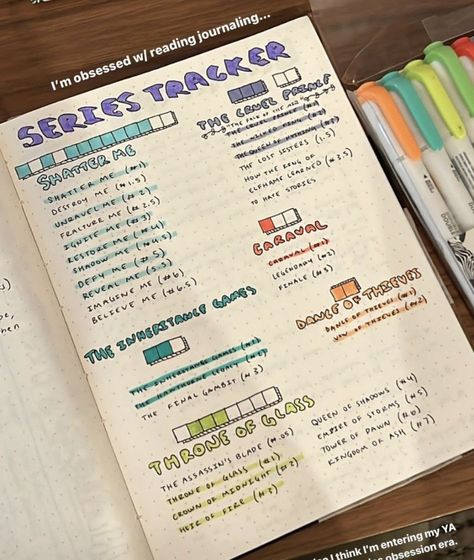 I'm obsessed w/ reading journaling...
SERIES TRACKER
SHATTER ME
SHATTER ME (#1)
DESTROY ME (#1.5)
UNRAVEL ME (#2)
FRACTURE ME (#2.5)
IGNITE ME (#3)
RESTORE ME (#4)
SHADOW ME (#4.5)
DEFY ME (#5)
REVEAL ME (5.5)
IMAGINE ME (#6)
BELIEVE ME (#6.5)
THE INHERITANCE GAMES
THE INHERITANCE GAMES (#1)
THE HAWTHORNE LEGACY (#2)
THE FINAL GAMBIT (#3)
THRONE OF GLASS
THE ASSASSIN'S BLADE (#.05)
THRONE OF GLASS (#1)
CROWN OF MIDNIGHT (#2)
HEIR OF FIRE (#3)
QUEEN OF SHADOWS (#4)
EMPIRE OF STORMS (#5)
TOWER OF DAWN (#6)
KINGDOM OF ASH (#7)
THE CRUEL PRINCE
"THE FOLK OF THE AIR"
THE CRUEL PRINCE (#1)
THE WICKED KING (#2)
THE QUEEN OF NOTHING (#3)
THE LOST SISTERS (1.5)
HOW THE KING OF
ELFHAME LEARNED (#3.5)
TO HATE STORIES
CARAVAL
CARAVAL (#1)
LEGENDARY (#2)
FINALE (#3)
DANCE OF THIEVES
DANCE OF THIEVES (#1)
VOW OF THIEVES (#2)
I think I'm entering my YA
obsession era.